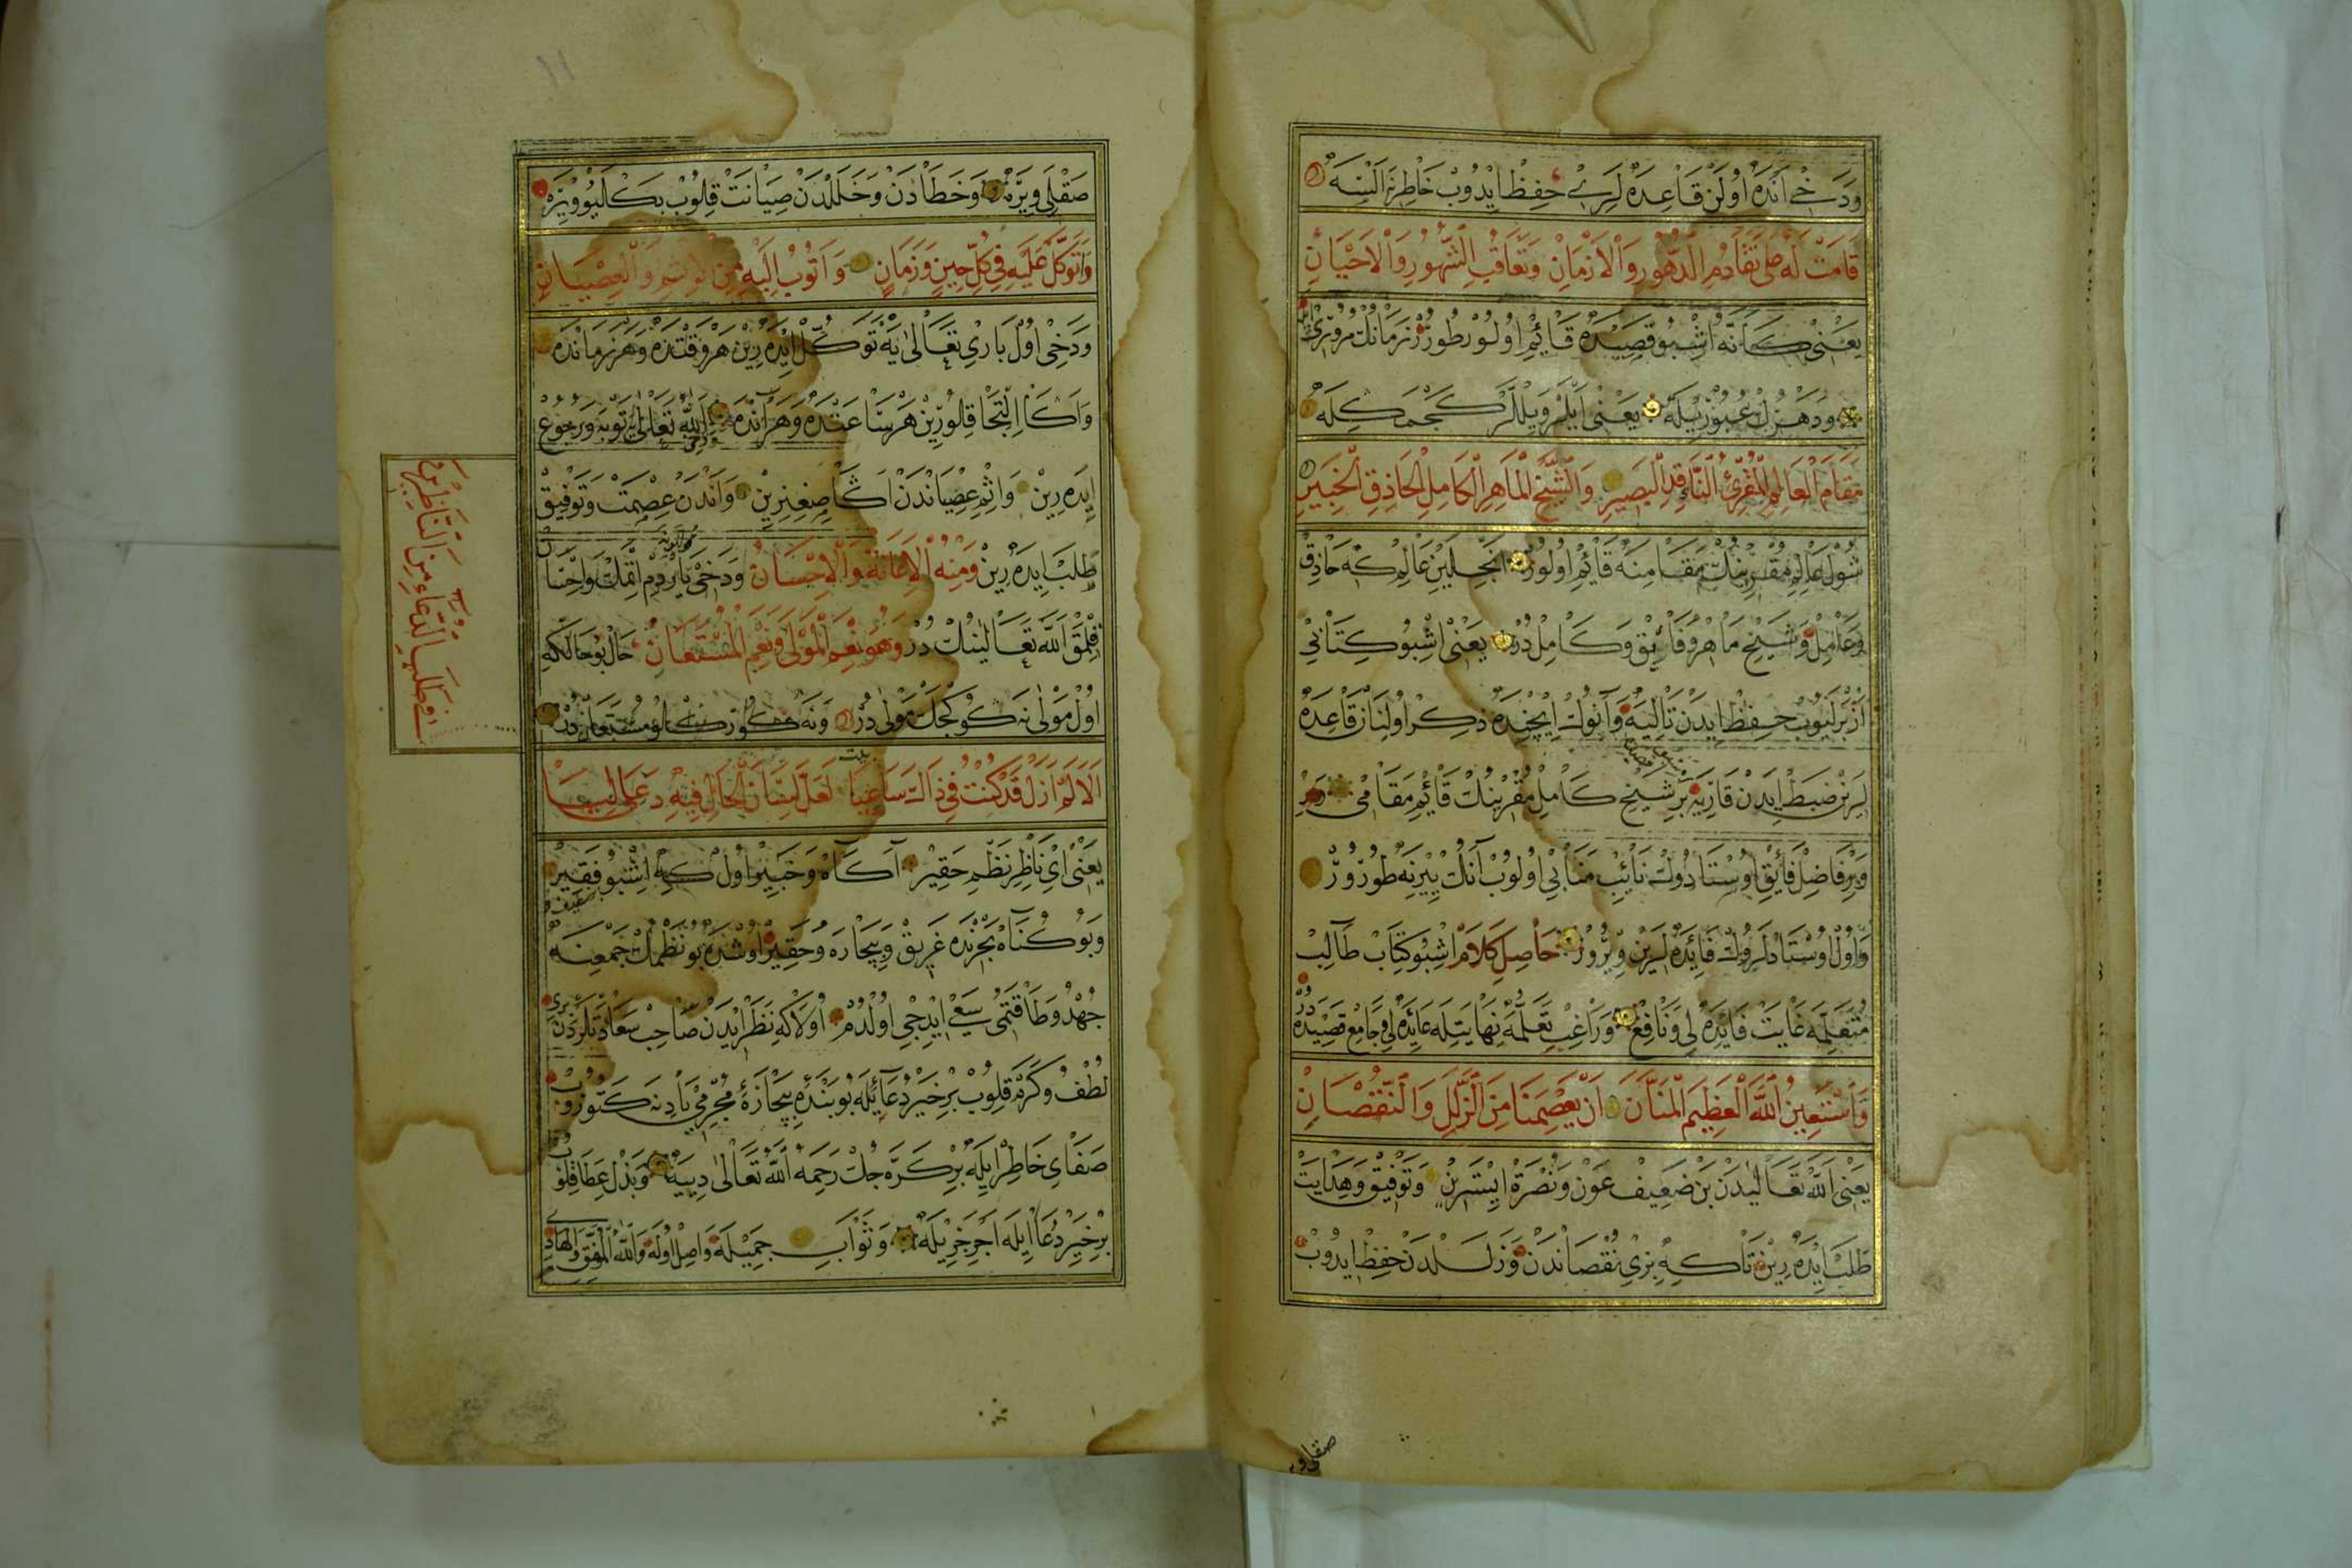 وَدَخِي اَنْدَه اُولَنْ قَاعِدَه لَرِي حِفْظ اِيدُوبْ خَاطِرِنَه اَلْسَه
قَامَتْ لَهُ عَلَى تَقَادُمِ الدُّهُورِ وَالْاَزْمَانِ وَتَعَاقُبِ الشُّهُورِ وَالْاَحْيَانِ
يَعْنِى كَاَنَّهُ اِشْبُو قَصِيدَه قَائِمْ اُولُورْ طُورُرْ زَمَانُكْ مُرُورِى
وَدَهْرُكْ عُبُورِيلَه يَعْنِى اَيْلَرْ وَيِلْلَرْ كَچْمَكِلَه
مَقَامَ الْعَالِمِ الْمُقْرِئِ النَّاقِدِ الْبَصِيرِ وَالشَّيْخِ الْمَاهِرِ الْكَامِلِ الْحَاذِقِ الْخَبِيرِ
شُولْ عَالِمِ مُقْرِينُكْ مَقَامِنَه قَائِمْ اُولُورْ اَنْجِلَيِنْ عَالِمْ كِه حَاذِق
وَعَامِلْ وَشَيْخِ مَاهِرْ وَفَائِقْ وَكَامِلْ دُرْ يَعْنِى اِشْبُو كِتَابِي
اَزْبَرْلَيُوبْ حِفْظْ اِيدَنْ تَالِيَه وَآنُوكْ اِيچِنْدَه ذِكْر اُولِنَانْ قَاعِدَه
لَرِنْ ضَبْطْ اِيدَنْ قَارِيَه بِرْ شَيْخِ كَامِلْ مُقْرِينُكْ قَائِمِ مَقَامِى دُرْ
وَبِرْ فَاضِلْ فَايِقْ اُوسْتَادُوكْ نَائِبِ مَنَابِي اُولُوبْ آنُكْ يِيرِنَه طُورُرْ
وَاُولْ اُوسْتَادْلَرُوكْ فَائِدَه لَرِينْ وِيرُرْ حَاصِلِ كَلَامْ اِشْبُو كِتَابْ طَالِبِ
مُتَعَلِّمَه غَايَتْ فَايِدَه لِي وَنَافِعْ وَرَاغِبِ تَعَلُّمَه نِهَايَتِلَه عَايِدَه لِي وَجَامِعْ قَصِيدَه دُرْ
وَاَسْتَعِينُ اللّٰهَ الْعَظِيمَ الْمَنَّانَ اَنْ يَعْصِمَنَا مِنَ الزَّلَلِ وَالنُّقْصَانِ
يَعْنِى اَللّٰه تَعَالٰيدَنْ بَنْ ضَعِيفْ عَوْنْ وَنُصْرَةْ اِيسْتَرِينْ وَتَوْفِيقْ وَهِدَايَتْ
طَلَبْ اِيدَه رِينْ تَاكِه بِزِي نُقْصَانْدَنْ وَزَلَلْدَنْ حِفْظْ اِيدُوبْ
صقلى وير
١١
صَقْلَى وِيرَه وَخَطَادَنْ وَخَلَلْدَنْ صِيَانَتْ قِلُوبْ بَكْلَيُو وِيرَه
وَاَتَوَكَّلُ عَلَيْهِ فِي كُلِّ حِينٍ وَزَمَانٍ وَاَتُوبُ اِلَيْهِ مِنَ الْاِثْمِ وَالْعِصْيَانِ
وَدَخِى اُولْ بَارِي تَعَالٰى يَه تَوَكُّلْ اِيدَه رِينْ هَرْ وَقْتْدَه وَهَرْ زَمَانْدَه
وَاَكَا اِلْتِجَا قِلُورِينْ هَرْ سَاعَتْدَه وَهَرْ آنْدَه وَدَخِى اللّٰه تَعَالٰى يَه تَوْبَه وَرُجُوعْ
اِيدَه رِينْ وَاِثْمِ عِصْيَانْدَنْ اَكَا صِغِنِرِينْ وَاَنْدَنْ عِصْمَتْ وَتَوْفِيقْ
طَلَبْ اِيدَه رِينْ وَمِنْهُ الْاِعَانَةُ وَالْاِحْسَانُ وَدَخِى يَارْدِمْ اِتْمَكْ وَاِحْسَانْ
قِلْمَقْ اَللّٰه تَعَالٰينُكْ دُرْ وَهُوَ نِعْمَ الْمَوْلَى وَنِعْمَ الْمُسْتَعَانُ حَالْ بُو حَالْكِه
اُولْ مَوْلٰى نَه كُوكْچَكْ مَوْلٰى دُرْ وَنَه كُوركلُو مُسْتَعَانْ دُرْ
بيت
اَلَا لَمْ اَزَلْ قَدْ كُنْتُ فِي ذَاكَ سَاعِيًا لَعَلَّ لِسَانَ الْحَالِ فِيهِ دَعَا لِيَا
يَعْنِى اَيْ نَاظِرِ نَظْمِ حَقِيرْ آكَاهْ وَخَبِيرْ اُولْ كِه اِشْبُو فَقِيرْ
وَبُو كُنَاهْ بَحْرِنْدَه غَرِيقْ وَبِيچَارَه وَحَقِيرْ اُوشْدَه بُو نَظْمُكْ جَمْعِنَه
جُهْدْ وَطَاقَتِمْى سَعْيْ اِيدِيجِى اُولْدُمْ اُولَاكِه نَظَرْ اِيدَنْ صَاحِبْ سَعَادَتْلَرْدَنْ بِرِي
لُطْفْ وَكَرَمْ قِلُوبْ بِرْ خَيِرْ دُعَايِلَه بُو بَنْدَه بِيچَارَۀ مُجْرِمِي يَادِنَه كَتُورُوبْ
صَفَاىِ خَاطِرْ اِيلَه بِرْ كَرَّه جُكْ رَحِمَهُ اللّٰهُ تَعَالٰى دِيِيَه وَبَذْلِ عَطَا قِلُوبْ
بِرْ خَيِرْ دُعَا اِيلَه اَجِرْ جَزِيلَه وَثَوَابِ جَمِيلَه وَاصِلْ اُولَه وَاللّٰهُ الْمُوَفِّقُ وَالْهَادِي
الدُّعَاءِ مِنَ النَّاظِرِينَ